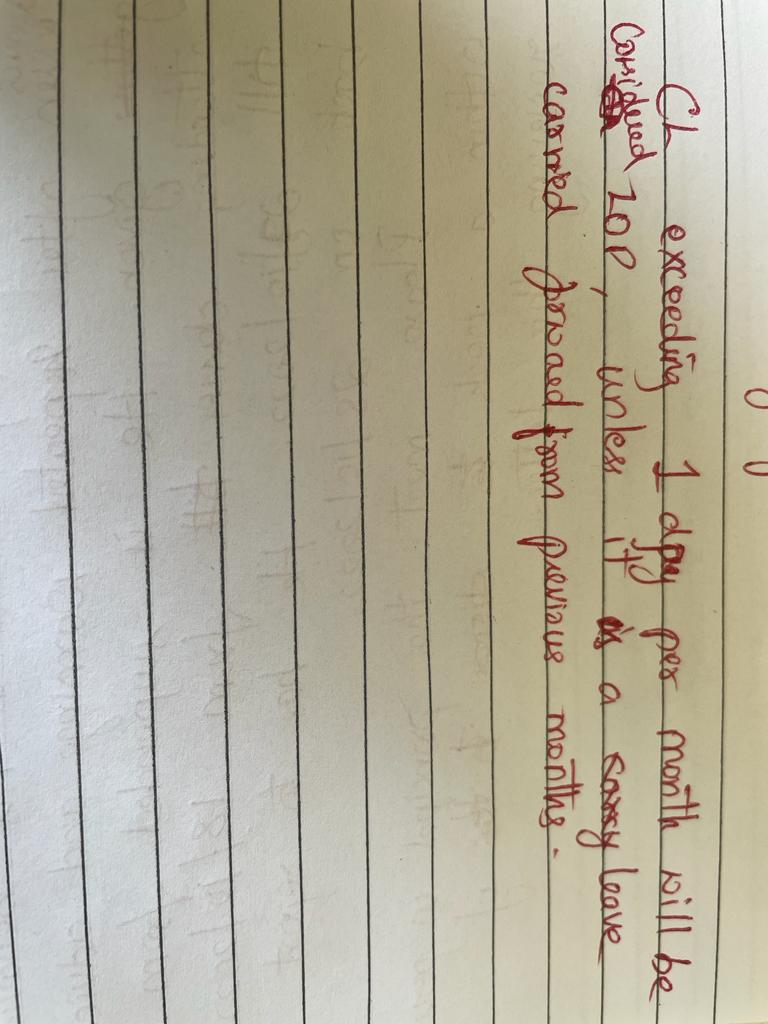 CL exceeding 1 day per month will be
Considered LOP, unless it is a leave
carried forward from previous months.